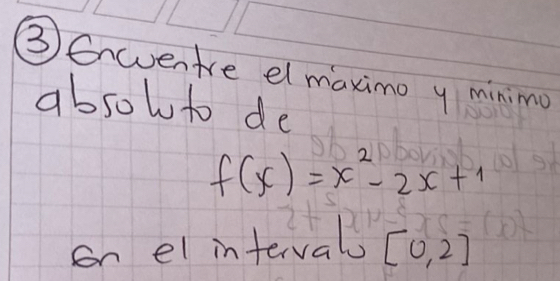 ③ Encuentre el máximo y mínimo
absoluto de
f(x) = x² - 2x + 1
en el intervalo [0,2]